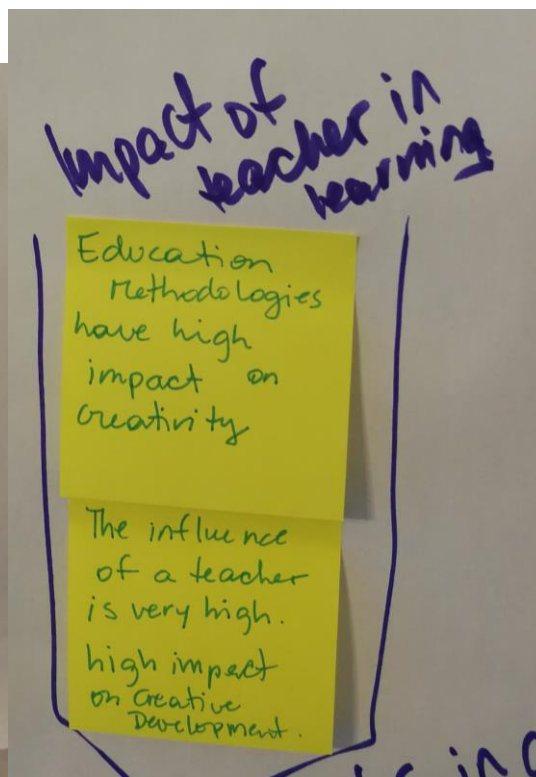 Impact of
teacher in
learning
Education
Methodologies
have high
impact on
creativity
The influence
of a teacher
is very high.
high impact
on Creative
Development.
in